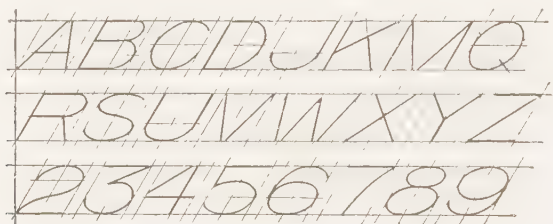 ABCDJKMQ
RSUVWXYZ
23456789